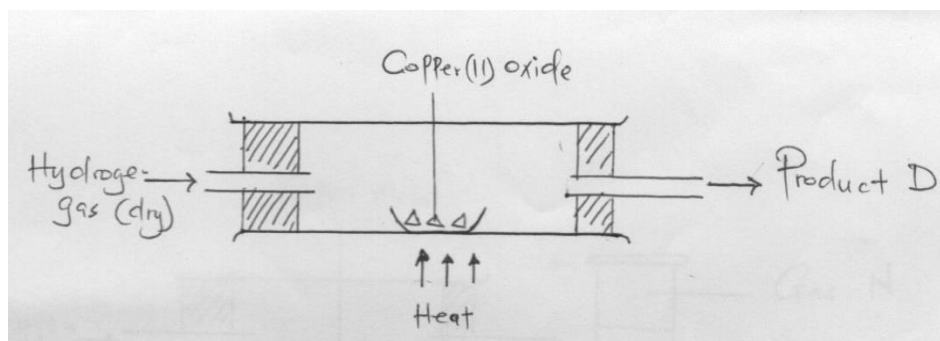 Copper(II) oxide
Hydroge-
gas (dry)
Product D
Heat